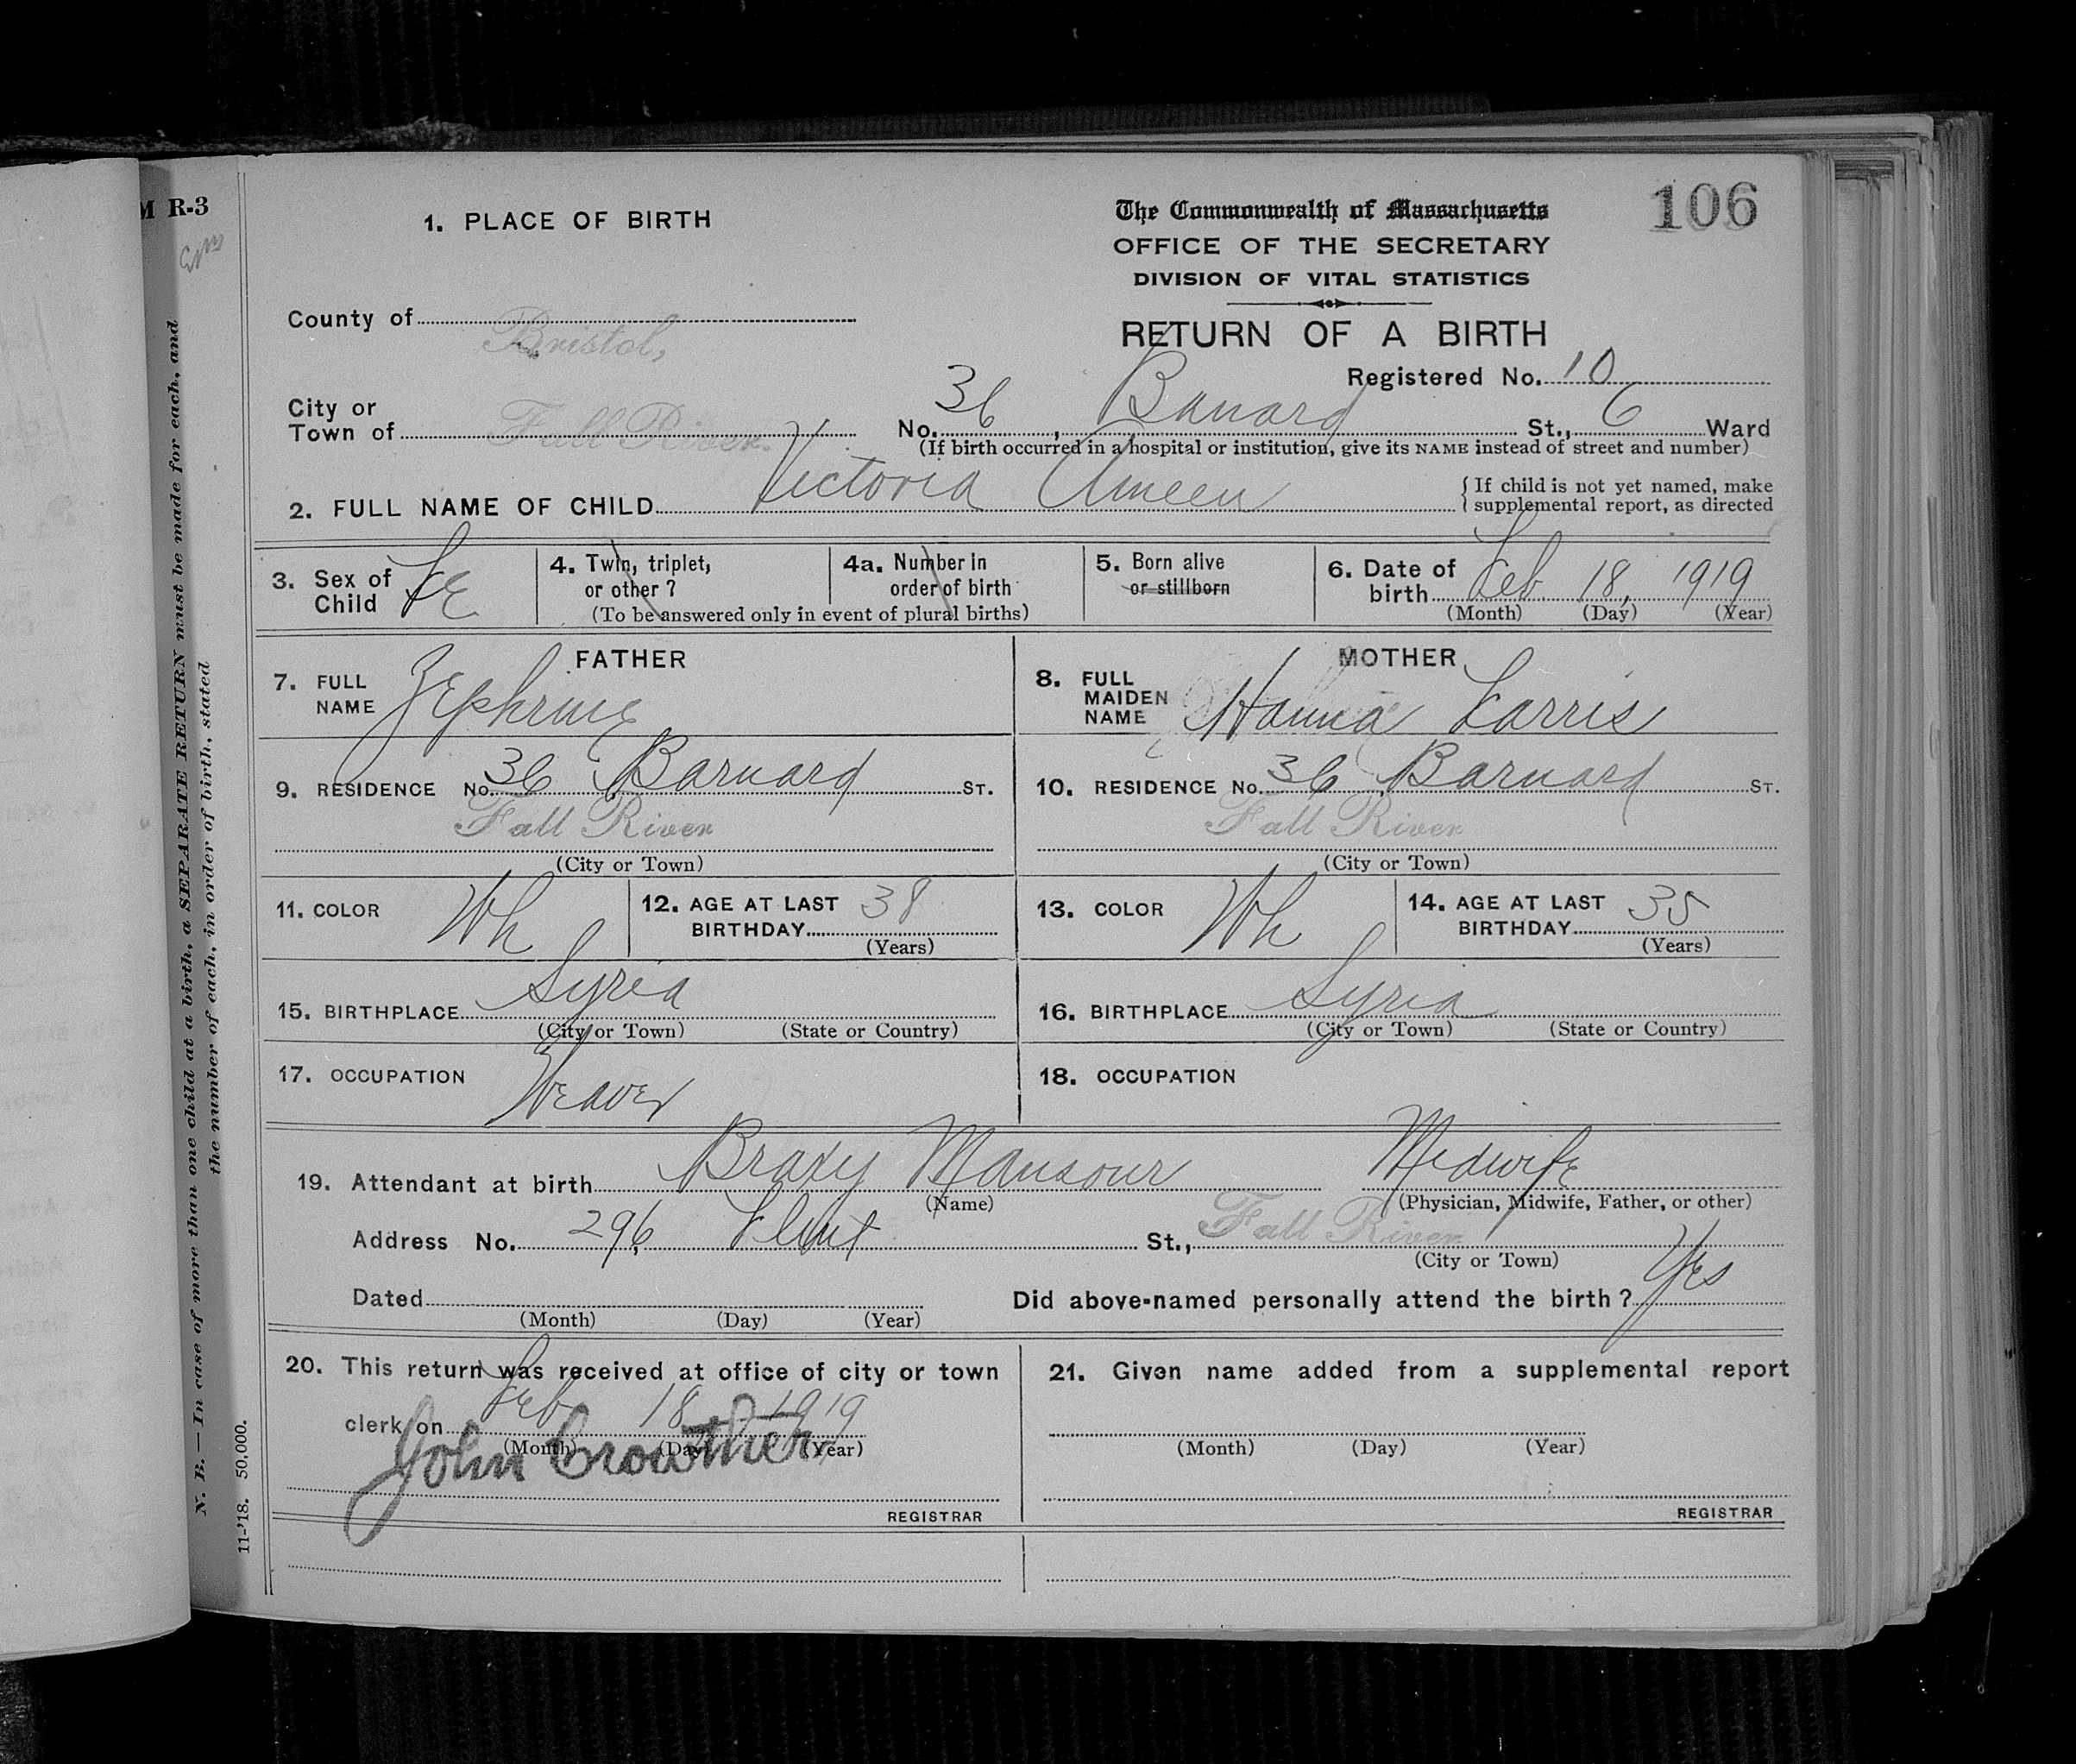 M R-3
106
1. PLACE OF BIRTH
The Commonwealth of Massachusetts
OFFICE OF THE SECRETARY
DIVISION OF VITAL STATISTICS
RETURN OF A BIRTH
County of Bristol,
Registered No. 10
City or
Town of Fall River.
No. 36, Banard St., 6 Ward
(If birth occurred in a hospital or institution, give its NAME instead of street and number)
2. FULL NAME OF CHILD Victoria Ameen
{If child is not yet named, make
supplemental report, as directed
3. Sex of
Child Fe
4. Twin, triplet,
or other?
4a. Number in
order of birth
(To be answered only in event of plural births)
5. Born alive
or stillborn
6. Date of
birth Feb. 18, 1919
(Month) (Day) (Year)
FATHER
7. FULL
NAME Zephrine
MOTHER
8. FULL
MAIDEN
NAME Hanna Farris
9. RESIDENCE No. 36, Barnard ST.
Fall River
(City or Town)
10. RESIDENCE No. 36, Barnard ST.
Fall River
(City or Town)
11. COLOR Wh
12. AGE AT LAST
BIRTHDAY 38
(Years)
13. COLOR Wh
14. AGE AT LAST
BIRTHDAY 35
(Years)
15. BIRTHPLACE Syria
(City or Town) (State or Country)
16. BIRTHPLACE Syria
(City or Town) (State or Country)
17. OCCUPATION Weaver
18. OCCUPATION
19. Attendant at birth Mansour Midwife
(Name) (Physician, Midwife, Father, or other)
Address No. 296, Flint St., Fall River
(City or Town)
Dated
(Month) (Day) (Year)
Did above-named personally attend the birth? Yes
20. This return was received at office of city or town
clerk on Feb 18 1919
(Month) (Day) (Year)
John Crowther
REGISTRAR
21. Given name added from a supplemental report
(Month) (Day) (Year)
REGISTRAR
N. B.—In case of more than one child at a birth, a SEPARATE RETURN must be made for each, and
the number of each, in order of birth, stated
11-'18. 50,000.